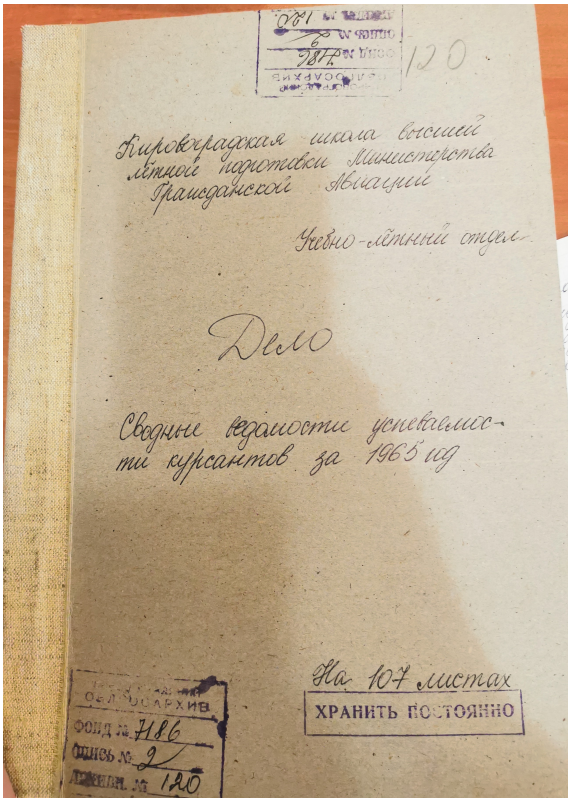 120
ОПИСЬ № 2
ФОНД № 7186
120
Кировоградская школа высшей
лётной подготовки Министерства
Гражданской Авиации
Учебно-лётный отдел
Дело
Сводные ведомости успеваемос-
ти курсантов за 1965 уд
На 107 листах
ХРАНИТЬ ПОСТОЯННО
ОБЛГОСАРХИВ
ФОНД № 7186
ОПИСЬ № 2
№ 120